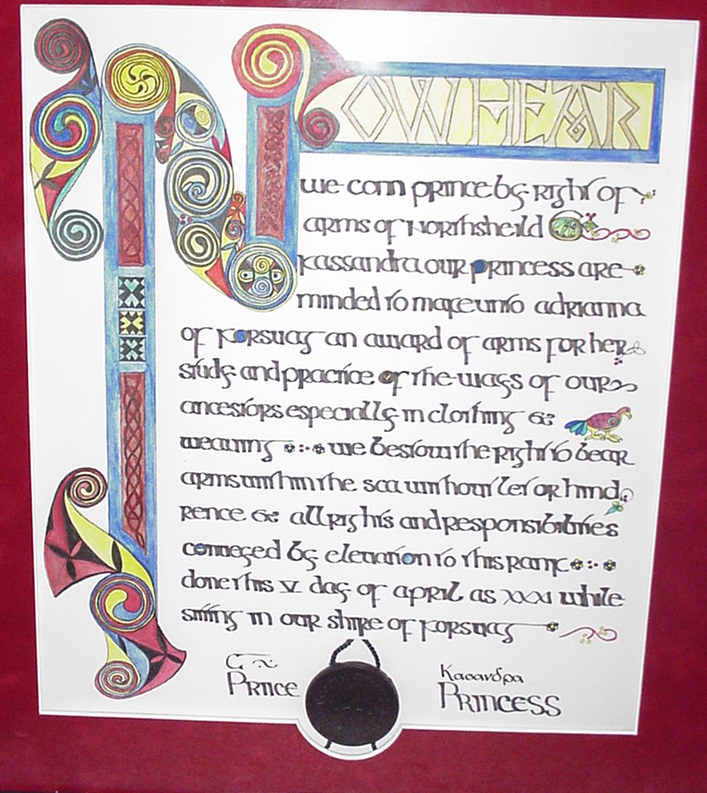 NOW HEAR
we conn prince by right of
arms of northsheild &
kassandra our princess are
minded to make unto adrianna
of korsvag an award of arms for her
study and practice of the ways of our
ancestors especially in clothing &
weaving we bestow the right to bear
arms within the sca without let or hind
rence & all rights and responsibilities
conveyed by elevation to this rank
done this V day of april as xxxi while
sitting in our shire of korsvag
Prince
Κασανδρα
Princess